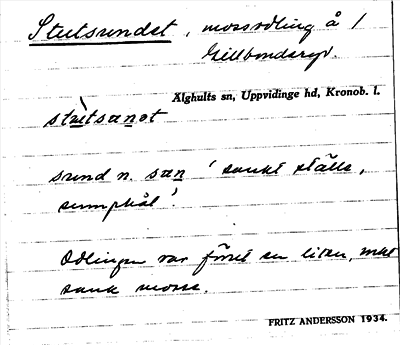 Stutsundet, mossodling å 1
Gillbondaryd.
Älghults sn, Uppvidinge hd, Kronob. l.
stùtsanot
sund n. san 'sankt ställe,
sumphål'.
Odlingen var förut en liten, mkt
sank mosse.
FRITZ ANDERSSON 1934.